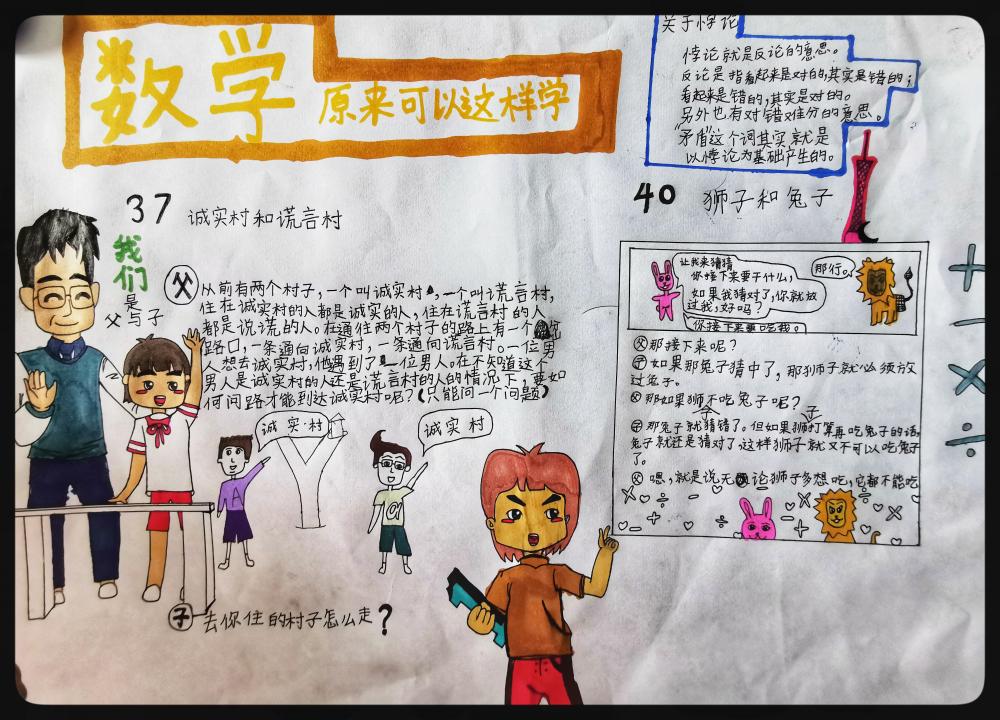 数学
原来可以这样学
关于悖论
悖论就是反论的意思。
反论是指看起来是对的,其实是错的;
看起来是错的,其实是对的。
另外也有对错难分的意思。
"矛盾"这个词其实就是
以悖论为基础产生的。
37 诚实村和谎言村
我们
是
父与子
父 从前有两个村子,一个叫诚实村,一个叫谎言村,
住在诚实村的人都是诚实的人,住在谎言村的人
都是说谎的人。在通往两个村子的路上有一个
路口,一条通向诚实村,一条通向谎言村。一位男
人想去诚实村,他遇到了一位男人。在不知道这个
男人是诚实村的人还是谎言村的人的情况下,要如
何问路才能到达诚实村呢?(只能问一个问题)
诚实村
诚实村
子 去你住的村子怎么走?
40 狮子和兔子
让我来猜猜
你接下来要干什么,
如果我猜对了,你就放
过我,好吗?
那行。
你接下来要吃我。
父 那接下来呢?
子 如果那兔子猜中了,那狮子就必须放
过兔子。
父 那如果狮子不吃兔子呢?
子 那兔子就猜错了。但如果狮子打算再吃兔子的话,
兔子就还是猜对了,这样狮子就又不可以吃兔子
了。
父 嗯,就是说无论狮子多想吃,它都不能吃